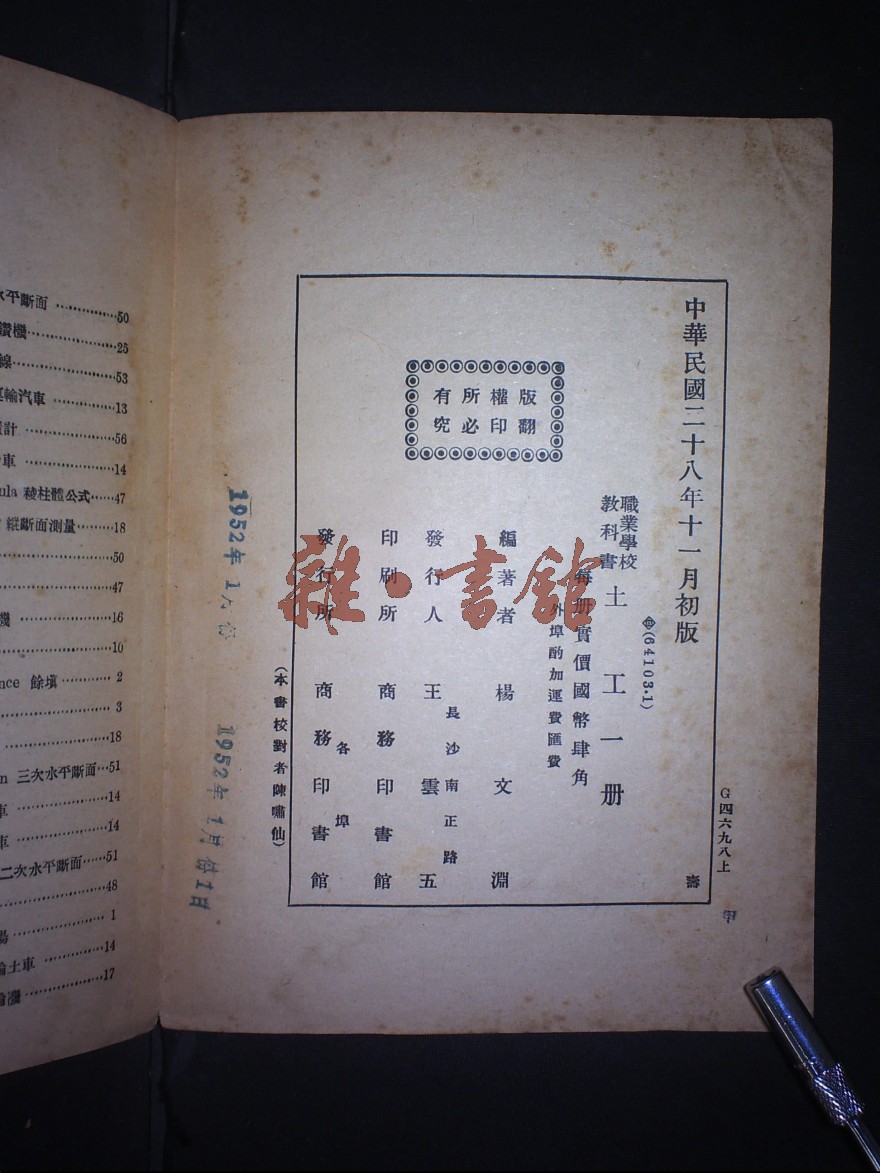 中華民國二十八年十一月初版
(64103·1)
職業學校
教科書
土工一册
每册實價國幣肆角
外埠酌加運費匯費
版權所有
翻印必究
編著者 楊文淵
長沙南正路
發行人 王雲五
印刷所 商務印書館
各埠
發行所 商務印書館
(本書校對者陳嘯仙)
G四六九八上
壽
學
1952年1月份
1952年1月份1日
雜·書館
水平斷面 50
鑽機 25
線 53
運輸汽車 13
計 56
車 14
ula 稜柱體公式 47
縱斷面測量 18
50
47
機 16
10
nce 餘塡 2
3
18
n 三次水平斷面 51
車 14
車 14
二次水平斷面 51
48
1
輸土車 14
17